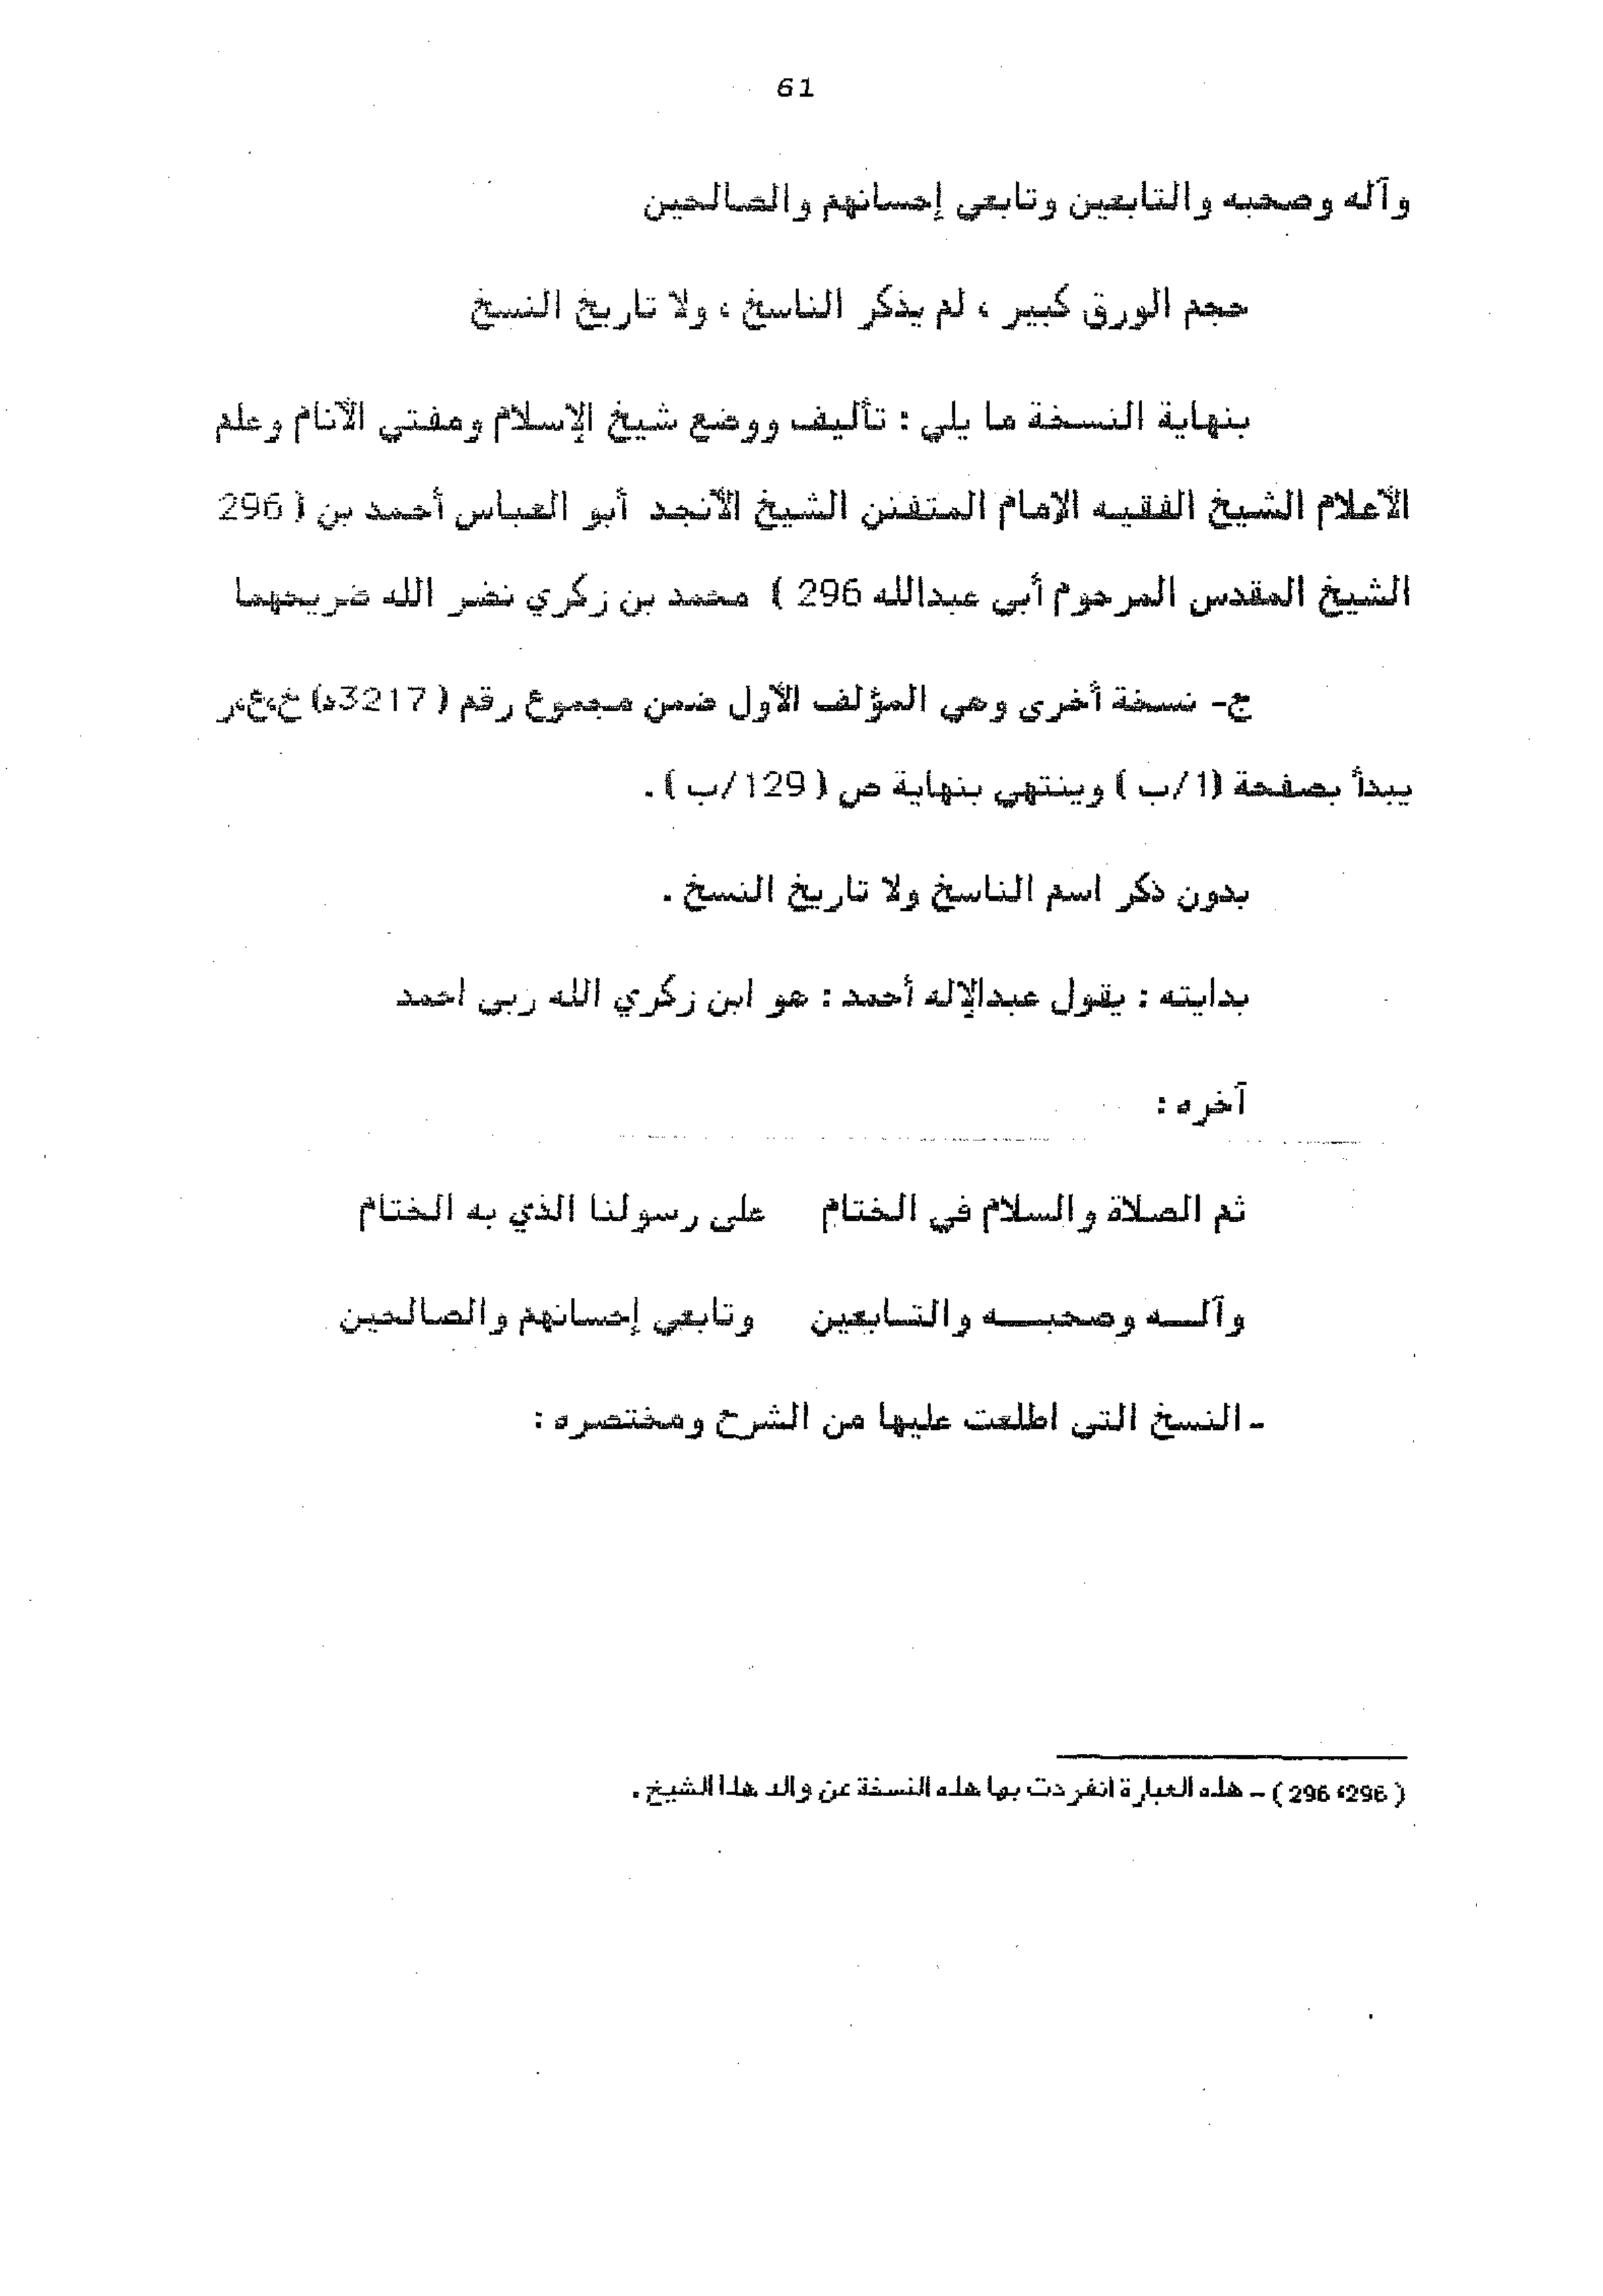 61
وآله وصحبه والتابعين وتابعي إحسانهم والصالحين
حجم الورق كبير ، لم يذكر الناسخ ، ولا تاريخ النسخ
بنهاية النسخة ما يلي : تأليف ووضع شيخ الإسلام ومفتي الأنام وعلم
الأعلام الشيخ الفقيه الإمام المتفنن الشيخ الأنجد أبو العباس أحمد بن ( 296
الشيخ المقدس المرحوم أبي عبدالله 296 ) محمد بن زكري نضر الله ضريحهما
ج- نسخة أخرى وهي المؤلف الأول ضمن مجموع رقم ( 3217د) خ،ع،ر
يبدأ بصفحة (1/ب ) وينتهي بنهاية ص ( 129/ب ) .
بدون ذكر اسم الناسخ ولا تاريخ النسخ .
بدايته : يقول عبدالإله أحمد : هو ابن زكري الله ربى احمد
آخره :
ثم الصلاة والسلام في الختام على رسولنا الذي به الختام
وآلـــه وصحبـــه والتــابعين وتابعي إحسانهم والصالحين
ـ النسخ التى اطلعت عليها من الشرح ومختصره :
( 296، 296 ) – هذه العبارة انفردت بها هذه النسخة عن والد هذا الشيخ .